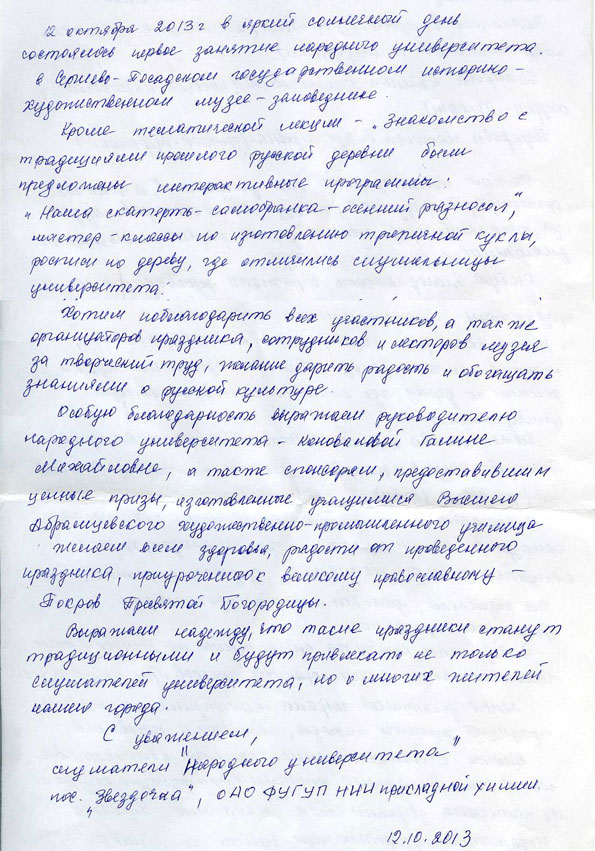 12 октября 2013г в яркий солнечный день
состоялось первое занятие народного университета
в Сергиево-Посадском государственном историко-
художественном музее-заповеднике.
Кроме тематической лекции - „Знакомство с
традициями прошлого русской деревни были
предложены интерактивные программы:
„Наша скатерть-самобранка - осенний разносол",
мастер-классы по изготовлению тряпичной куклы,
росписи по дереву, где отличились слушательницы
университета.
Хотим поблагодарить всех участников, а также
организаторов праздника, сотрудников и лекторов музея
за творческий труд, желание дарить радость и обогащать
знаниями о русской культуре.
Особую благодарность выражаем руководителю
народного университета - Коноваловой Галине
Михайловне, а также спонсорам, предоставившим
ценные призы, изготовленные учащимися Высшего
Абрамцевского художественно-промышленного училища
Желаем всем здоровья, радости от проведенного
праздника, приуроченного к великому православному -
Покров Пресвятой Богородицы.
Выражаем надежду, что такие праздники станут
традиционными и будут привлекать не только
слушателей университета, но и многих жителей
нашего города.
С уважением,
слушатели "Народного университета"
пос. „Звездочка", ОАО ФУГУП НИИ прикладной химии.
12.10.2013